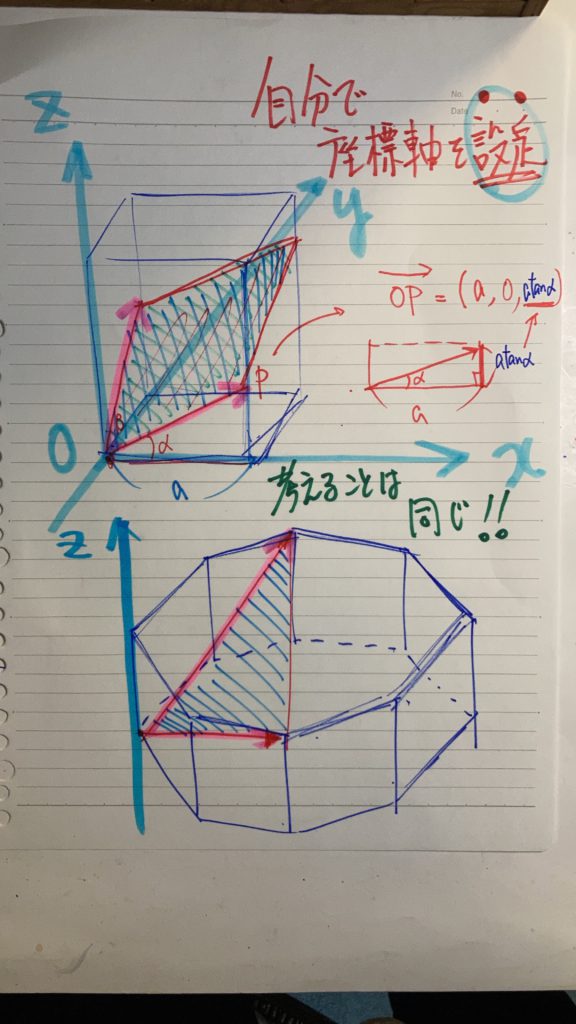 No.
Date
自分で
座標軸を設定
z
y
x
O
P
β
α
a
OP = (a, 0, atanα)
α
a
atanα
考えることは
同じ!!
z